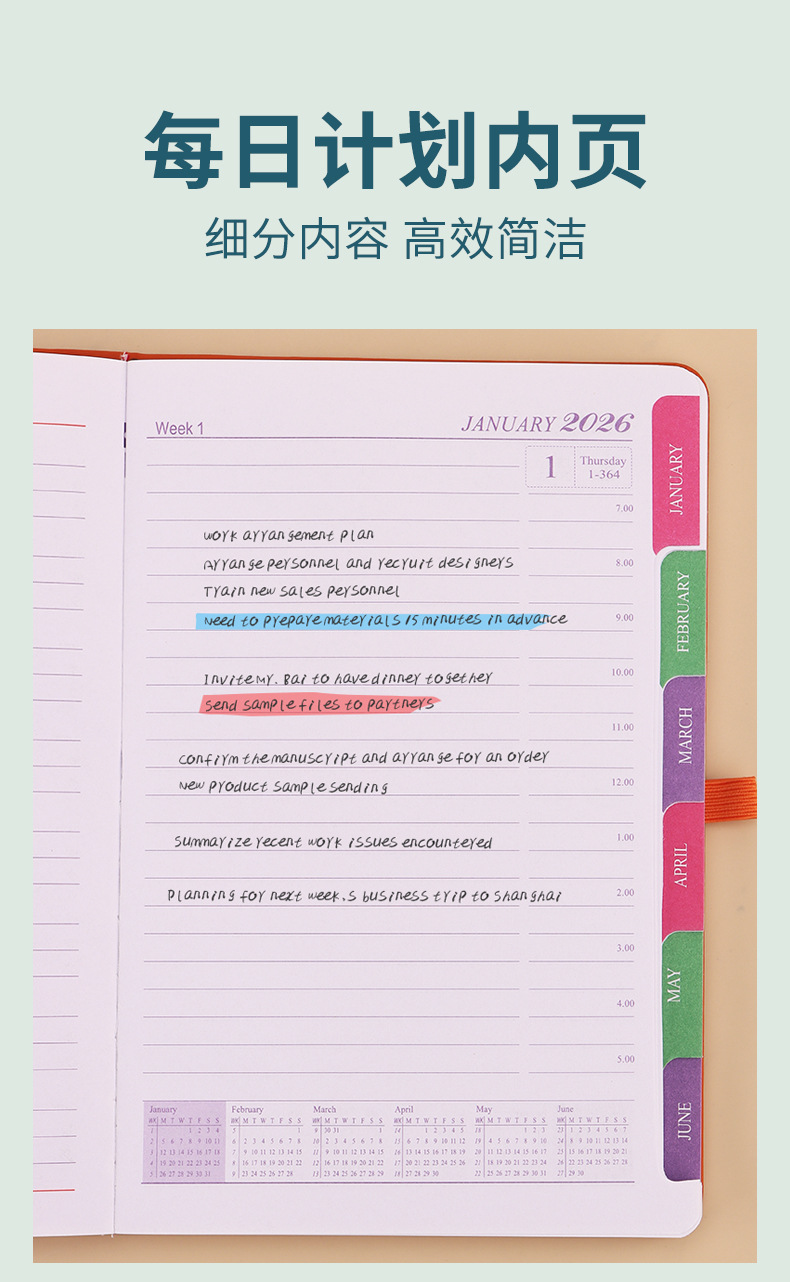 每日计划内页
细分内容 高效简洁
Week 1
JANUARY 2026
1
Thursday
1-364
7.00
work arrangement plan
Arrange personnel and recruit designers
8.00
Train new sales personnel
Need to prepare materials 15 minutes in advance
9.00
Invite Mr. Bai to have dinner together
10.00
Send sample files to partners
11.00
confirm the manuscript and arrange for an order
New product sample sending
12.00
Summarize recent work issues encountered
1.00
Planning for next week.s business trip to Shanghai
2.00
3.00
4.00
5.00
JANUARY
FEBRUARY
MARCH
APRIL
MAY
JUNE
January February March April May June